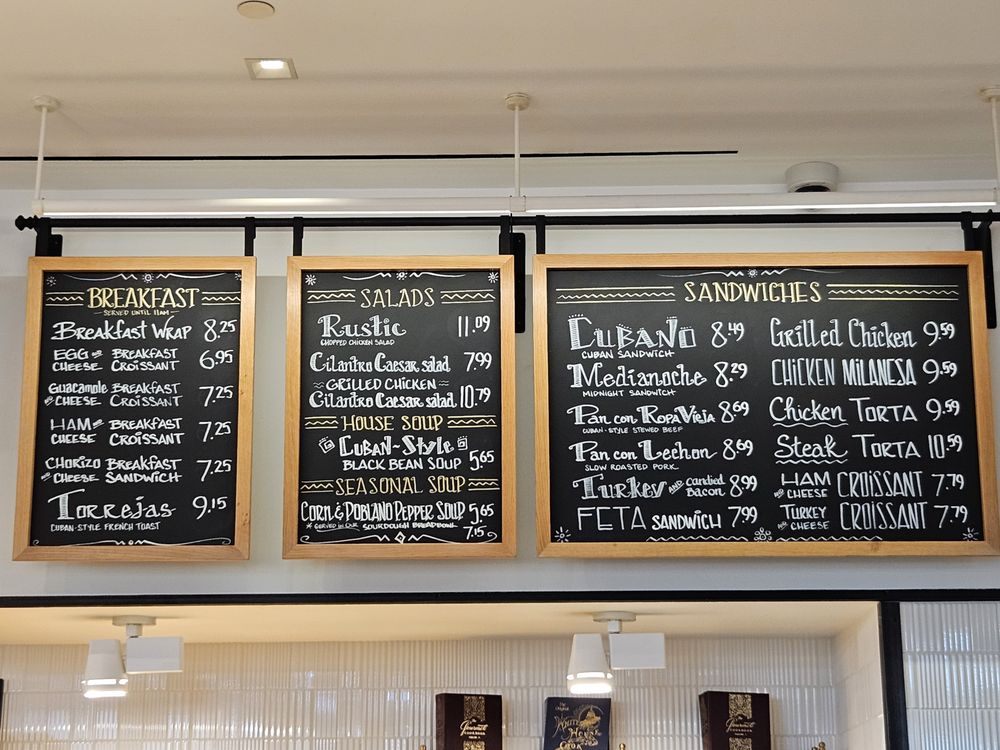 BREAKFAST
SERVED UNTIL 11AM
Breakfast WRAP 8.25
EGG AND BREAKFAST
CHEESE CROISSANT 6.95
Guacamole BREAKFAST
AND CHEESE CROISSANT 7.25
HAM AND BREAKFAST
CHEESE CROISSANT 7.25
CHORIZO BREAKFAST
AND CHEESE SANDWICH 7.25
Torrejas 9.15
CUBAN-STYLE FRENCH TOAST
SALADS
Rustic 11.09
CHOPPED CHICKEN SALAD
Cilantro Caesar salad 7.99
GRILLED CHICKEN
Cilantro Caesar salad 10.79
HOUSE SOUP
CUBAN-STYLE
BLACK BEAN SOUP 5.65
SEASONAL SOUP
CORN & POBLANO PEPPER SOUP 5.65
* SERVED IN OUR SOURDOUGH BREADBOWL 7.15
SANDWICHES
CUBANO 8.49
CUBAN SANDWICH
Medianoche 8.29
MIDNIGHT SANDWICH
Pan con Ropa Vieja 8.69
CUBAN-STYLE STEWED BEEF
Pan con Lechon 8.69
SLOW ROASTED PORK
Turkey AND candied Bacon 8.99
FETA SANDWICH 7.99
Grilled Chicken 9.59
CHICKEN MILANESA 9.59
Chicken TORTA 9.59
Steak TORTA 10.59
HAM AND CHEESE CROISSANT 7.79
TURKEY AND CHEESE CROISSANT 7.79
The Gourmet
COOKBOOK
The Original
WHITE HOUSE
COOK
The Gourmet
COOKBOOK